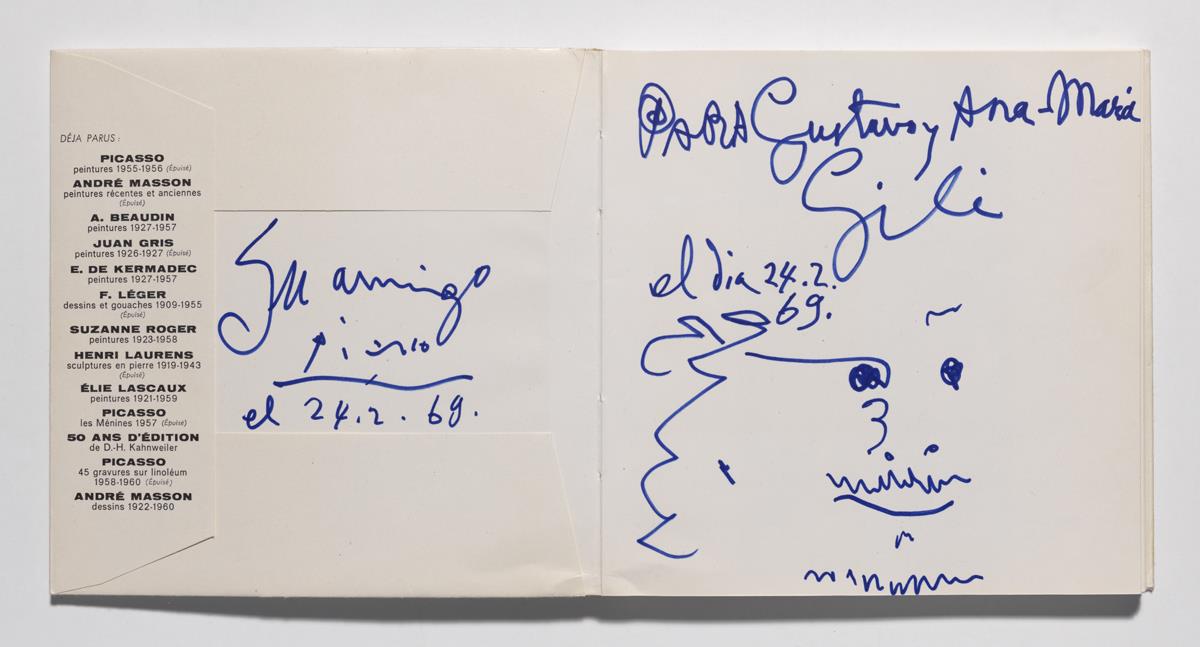 DÉJA PARUS :
PICASSO
peintures 1955-1956 (Épuisé)
ANDRÉ MASSON
peintures récentes et anciennes
(Épuisé)
A. BEAUDIN
peintures 1927-1957
JUAN GRIS
peintures 1926-1927 (Épuisé)
E. DE KERMADEC
peintures 1927-1957
F. LÉGER
dessins et gouaches 1909-1955
(Épuisé)
SUZANNE ROGER
peintures 1923-1958
HENRI LAURENS
sculptures en pierre 1919-1943
(Épuisé)
ÉLIE LASCAUX
peintures 1921-1959
PICASSO
les Ménines 1957 (Épuisé)
50 ANS D'ÉDITION
de D.-H. Kahnweiler
PICASSO
45 gravures sur linoléum
1958-1960 (Épuisé)
ANDRÉ MASSON
dessins 1922-1960
Su amigo
Picasso
el 24.2.69.
PARA Gustavo y Ana-María
Gili
el dia 24.2.
69.